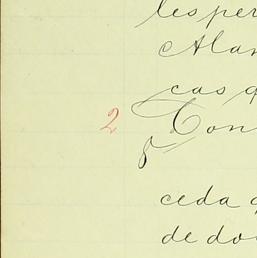 les per
Alan
cas q
2 Con
ceda q
de do